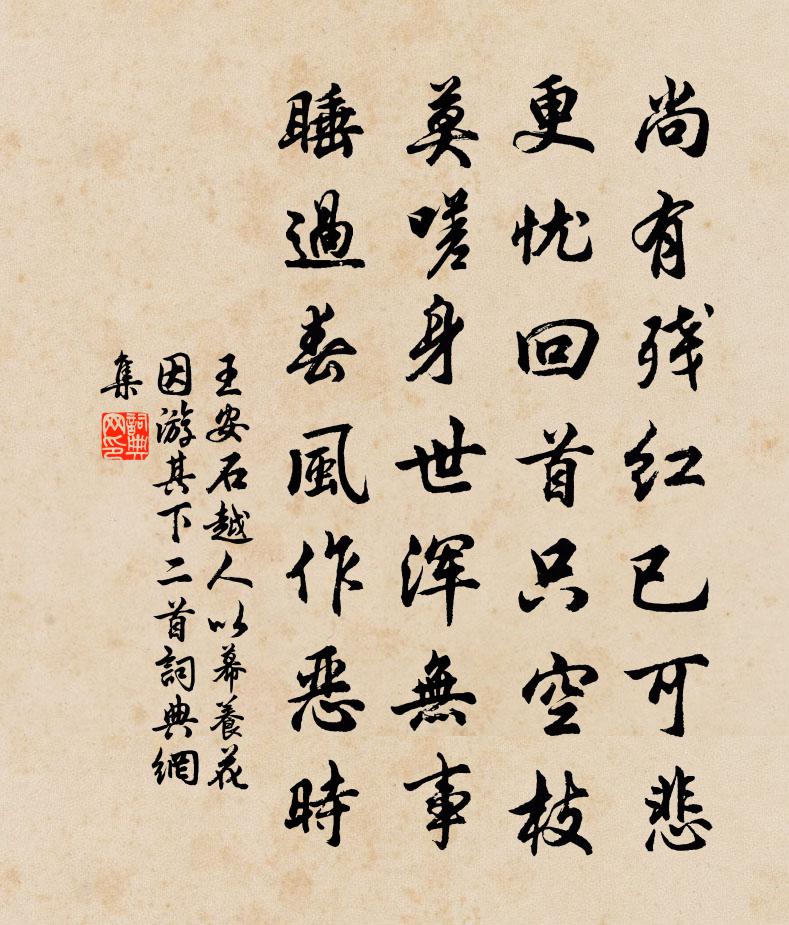 尚有残红已可悲
更忧回首只空枝
莫嗟身世浑無事
睡過春風作惡時
王安石越人以幕養花
因游其下二首詞典網
集
詞典
网印